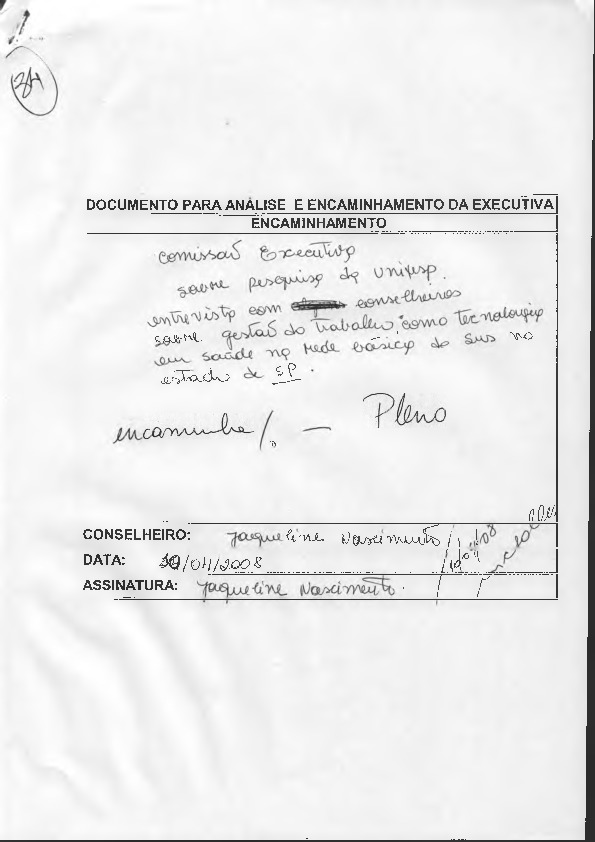 34
DOCUMENTO PARA ANÁLISE E ENCAMINHAMENTO DA EXECUTIVA
ENCAMINHAMENTO
Comissão Executiva
sobre pesquisa da Unifesp.
entrevista com conselheiros
sobre gestão do trabalho como tecnologia
em saúde na rede básica do SUS no
estado de SP.
encaminha/. — Pleno
CONSELHEIRO: Jaqueline Nascimento
10/04/08
DATA: 10/04/2008
ASSINATURA: Jaqueline Nascimento.